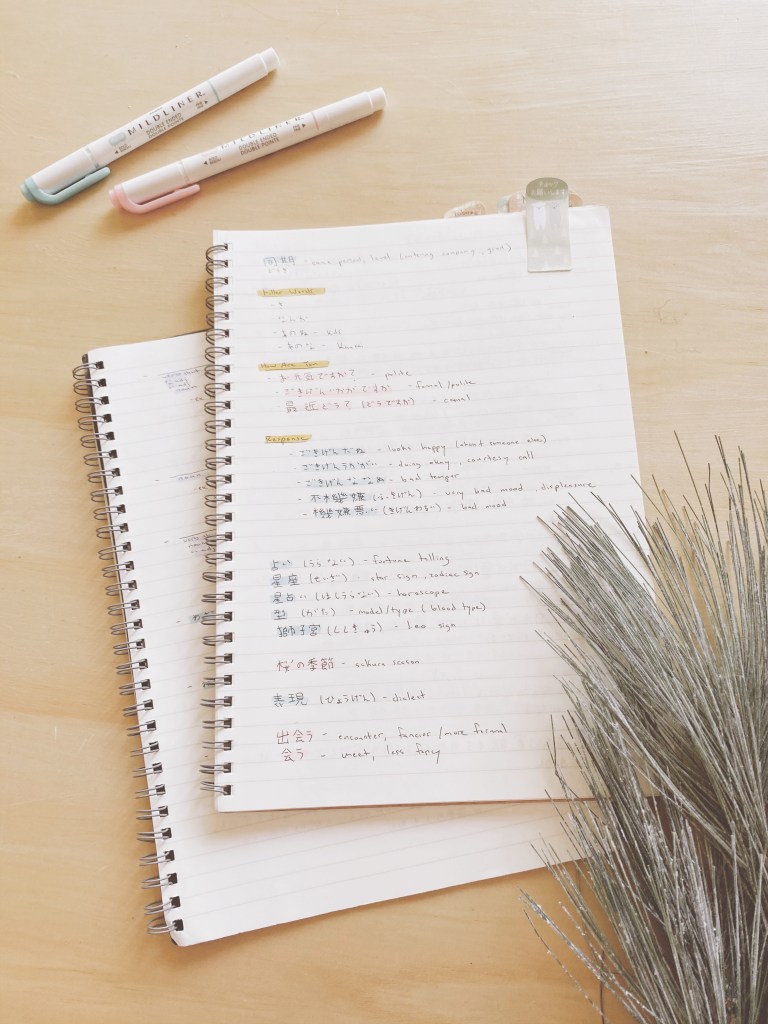 MILDLINER
DOUBLE ENDED
DOUBLE POINTS
MILDLINER
DOUBLE ENDED
DOUBLE POINTS
同期 - same period, level, (entering company, grad)
どうき
Filler Words
- え
- なんか
- あのね -
- あのな -
How Are You
- お元気ですか? - polite
- ごきげんいかがですか - formal/polite
- 最近どう? (どうですか) - casual
Response
- ごきげんだね - looks happy (about someone else)
- ごきげんうかがい - doing okay, courtesy call
- ごきげんななめ - bad temper
- 不機嫌 (ふきげん) - very bad mood, displeasure
- 機嫌悪い (きげんわるい) - bad mood
占い (うらない) - fortune telling
星座 (せいざ) - star sign, zodiac sign
星占い (ほしうらない) - horoscope
型 (がた) - model/type (blood type)
獅子宮 (ししきゅう) - Leo sign
桜の季節 - sakura season
表現 (ひょうげん) - dialect
出会う - encounter, fancier/more formal
会う - meet, less fancy